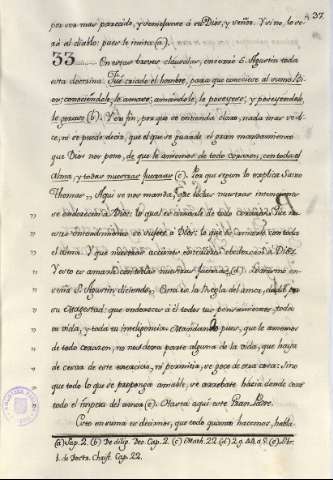 37
por vos mas parecido, y semejante à su Dios, y señor. Y si no, lo será al diablo: pues le imita (a).
33 En estas breves clausulas, encerró S. Agustin toda
esta doctrina. Fue criado el hombre, para que conociese al sumo Bien:
conociendole, le amase; amandole, le poseyese; y poseyendole,
le gozase (b). Y en fin, para que se entienda claro, nada mas se dice,
ni se puede decir, que el que se guarde el gran mandamiento
que Dios nos puso, de que le amemos de todo corazon, con toda el
Alma, y todas nuestras fuerzas (c). Los que segun lo explica Santo
Thomas: Aqui se nos manda, que toda nuestra intencion
se enderece à Dios: lo qual es amarle de todo corazon. Que nuestro
entendimiento se sujete à Dios: lo que es amarle con toda
el alma. Y que nuestras acciones obedezcan à Dios.
Y esto es amarle con todas nuestras fuerzas (d). Lo mismo enseña
S. Agustin, diciendo: Esta es la Regla del amor, dada por
su Magestad: que enderece à él todos tus pensamientos, toda
tu vida, y toda tu inteligencia. Mandando pues, que le amemos
de todo corazon, no nos dexa parte alguna de la vida, que haya
de cesar de esta execucion, ni permitir, se goce de otra cosa: Sino
que todo lo que se proponga amable, se arrebate hácia donde corre
todo el impetu del amor (e). Hasta aqui este Gran Padre.
Esto en suma es decirnos, que todo quanto hacemos, habla-
(a) Sap. 2. (b) De dilig. Deo. Cap. 2. (c) Math. 22. (d) 2. q. 44. a. 5. (e) Lib.
1. de Doctr. Christ. Cap. 22.